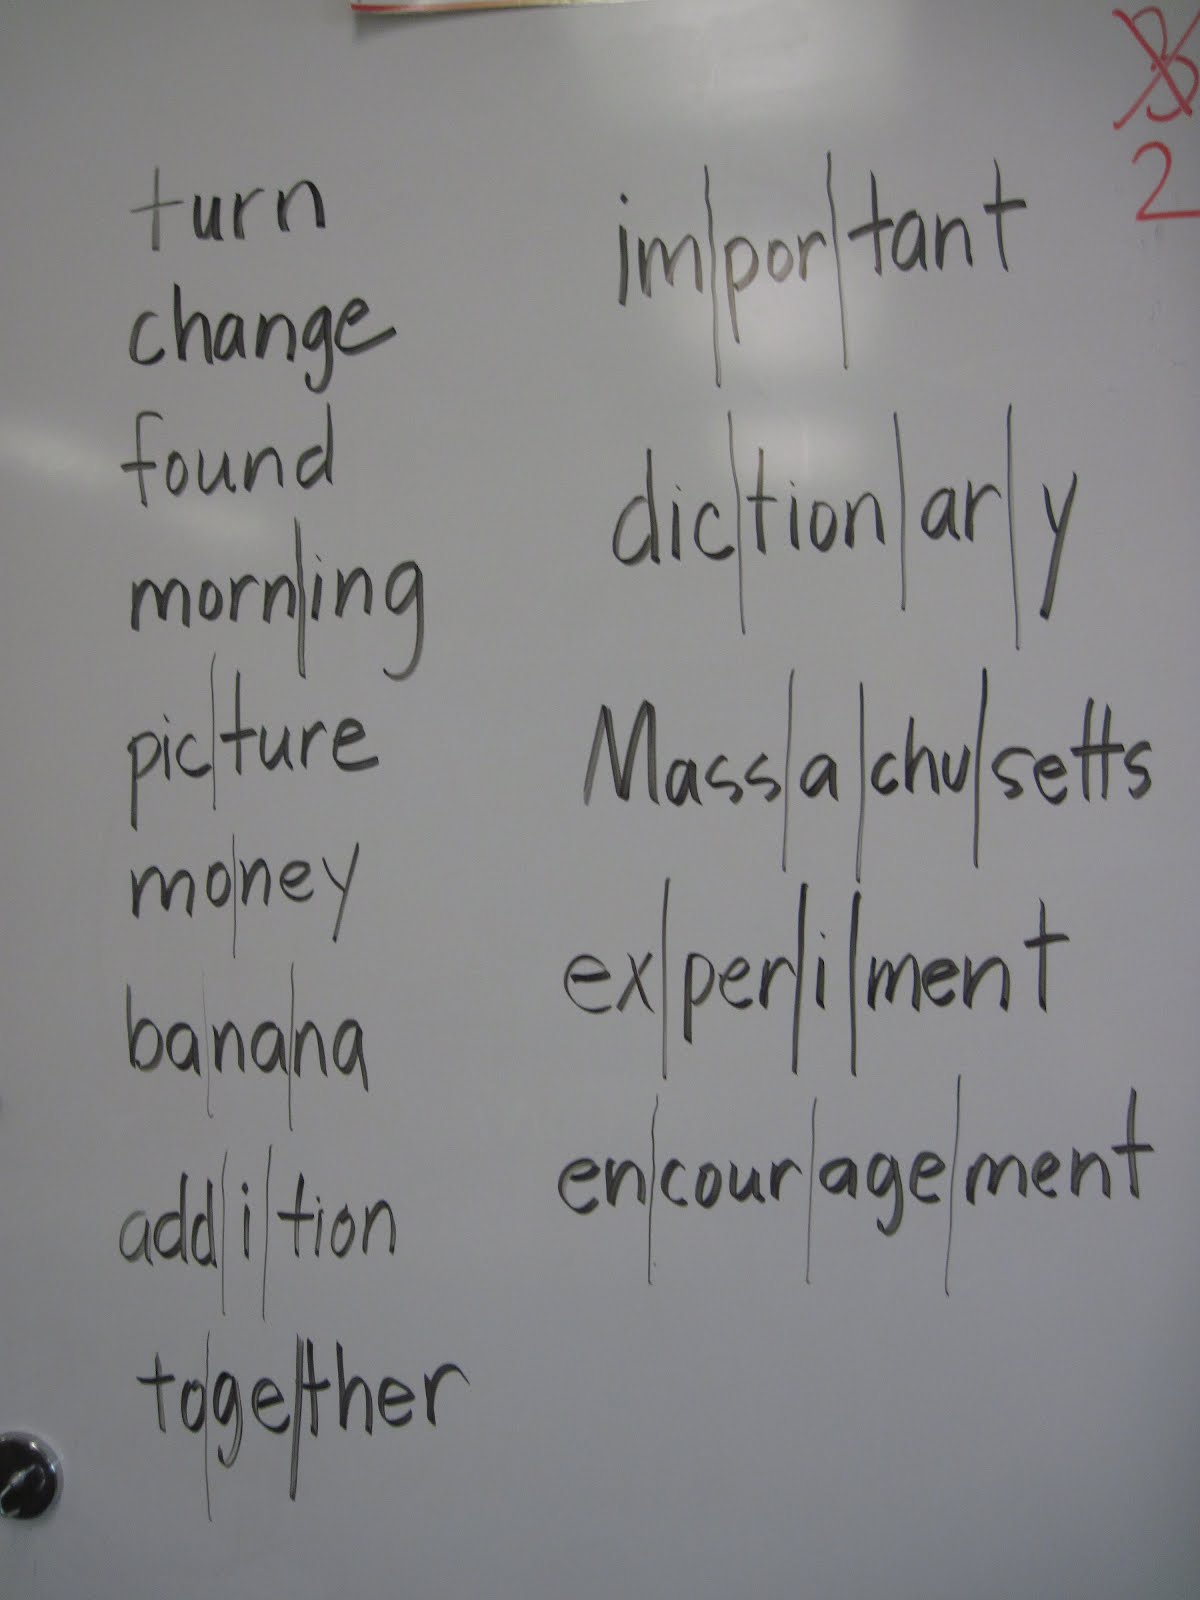 turn
change
found
morn|ing
pic|ture
mo|ney
ba|na|na
add|i|tion
to|ge|ther
im|por|tant
dic|tion|ar|y
Mass|a|chu|setts
ex|per|i|ment
en|cour|age|ment
2